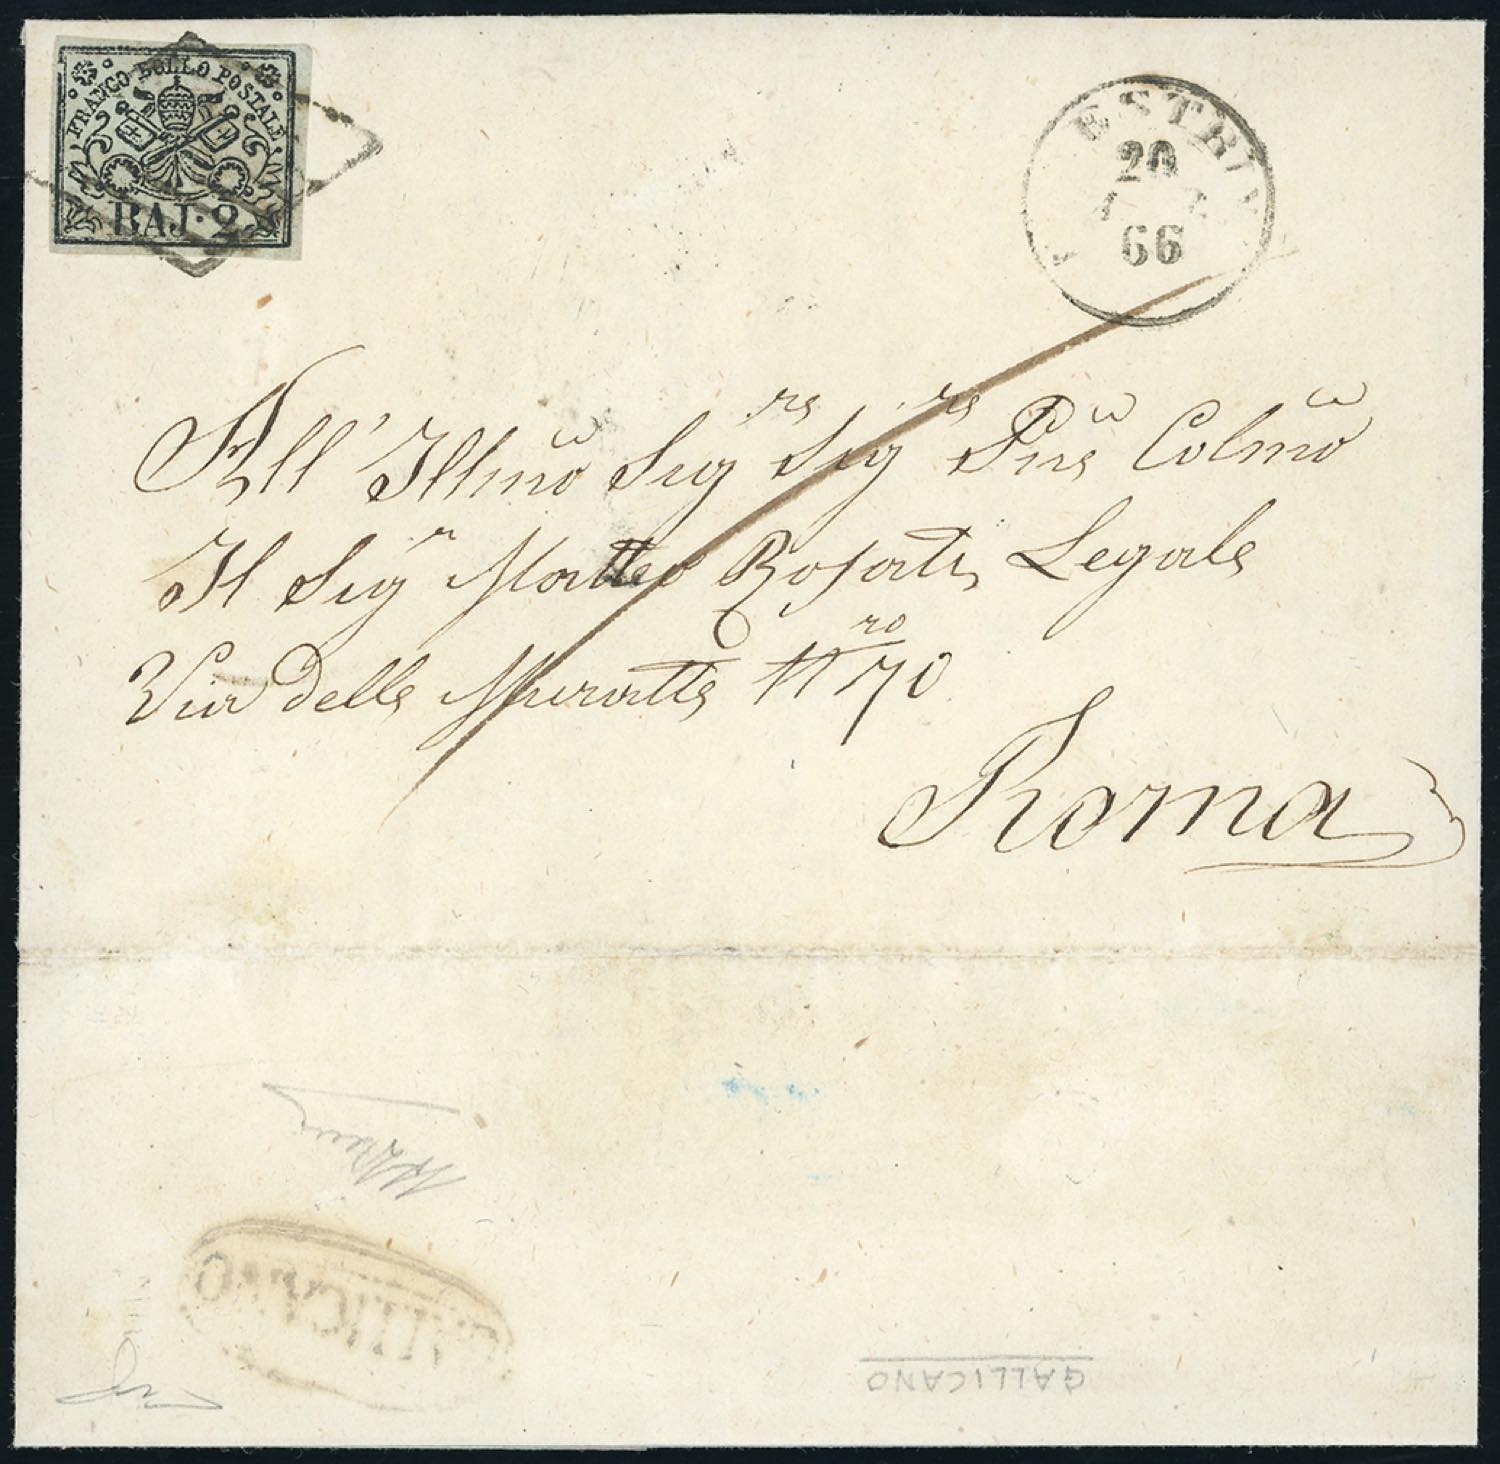 FRANCO BOLLO POSTALE
BAJ. 2
ESTRIN
20
66
All' Illmo Sigre Sigre Pne Colmo
Il Sigr Matteo Rosati, Legale
Via delle Muratte Nro 70
Roma
GALLICANO
GALLICANO